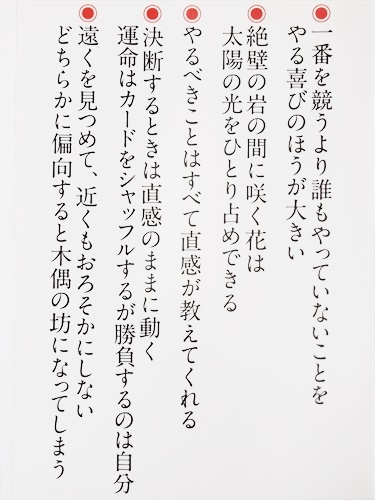 一番を競うより誰もやっていないことを
やる喜びのほうが大きい
絶壁の岩の間に咲く花は
太陽の光をひとり占めできる
やるべきことはすべて直感が教えてくれる
決断するときは直感のままに動く
運命はカードをシャッフルするが勝負するのは自分
遠くを見つめて、近くもおろそかにしない
どちらかに偏向すると木偶の坊になってしまう